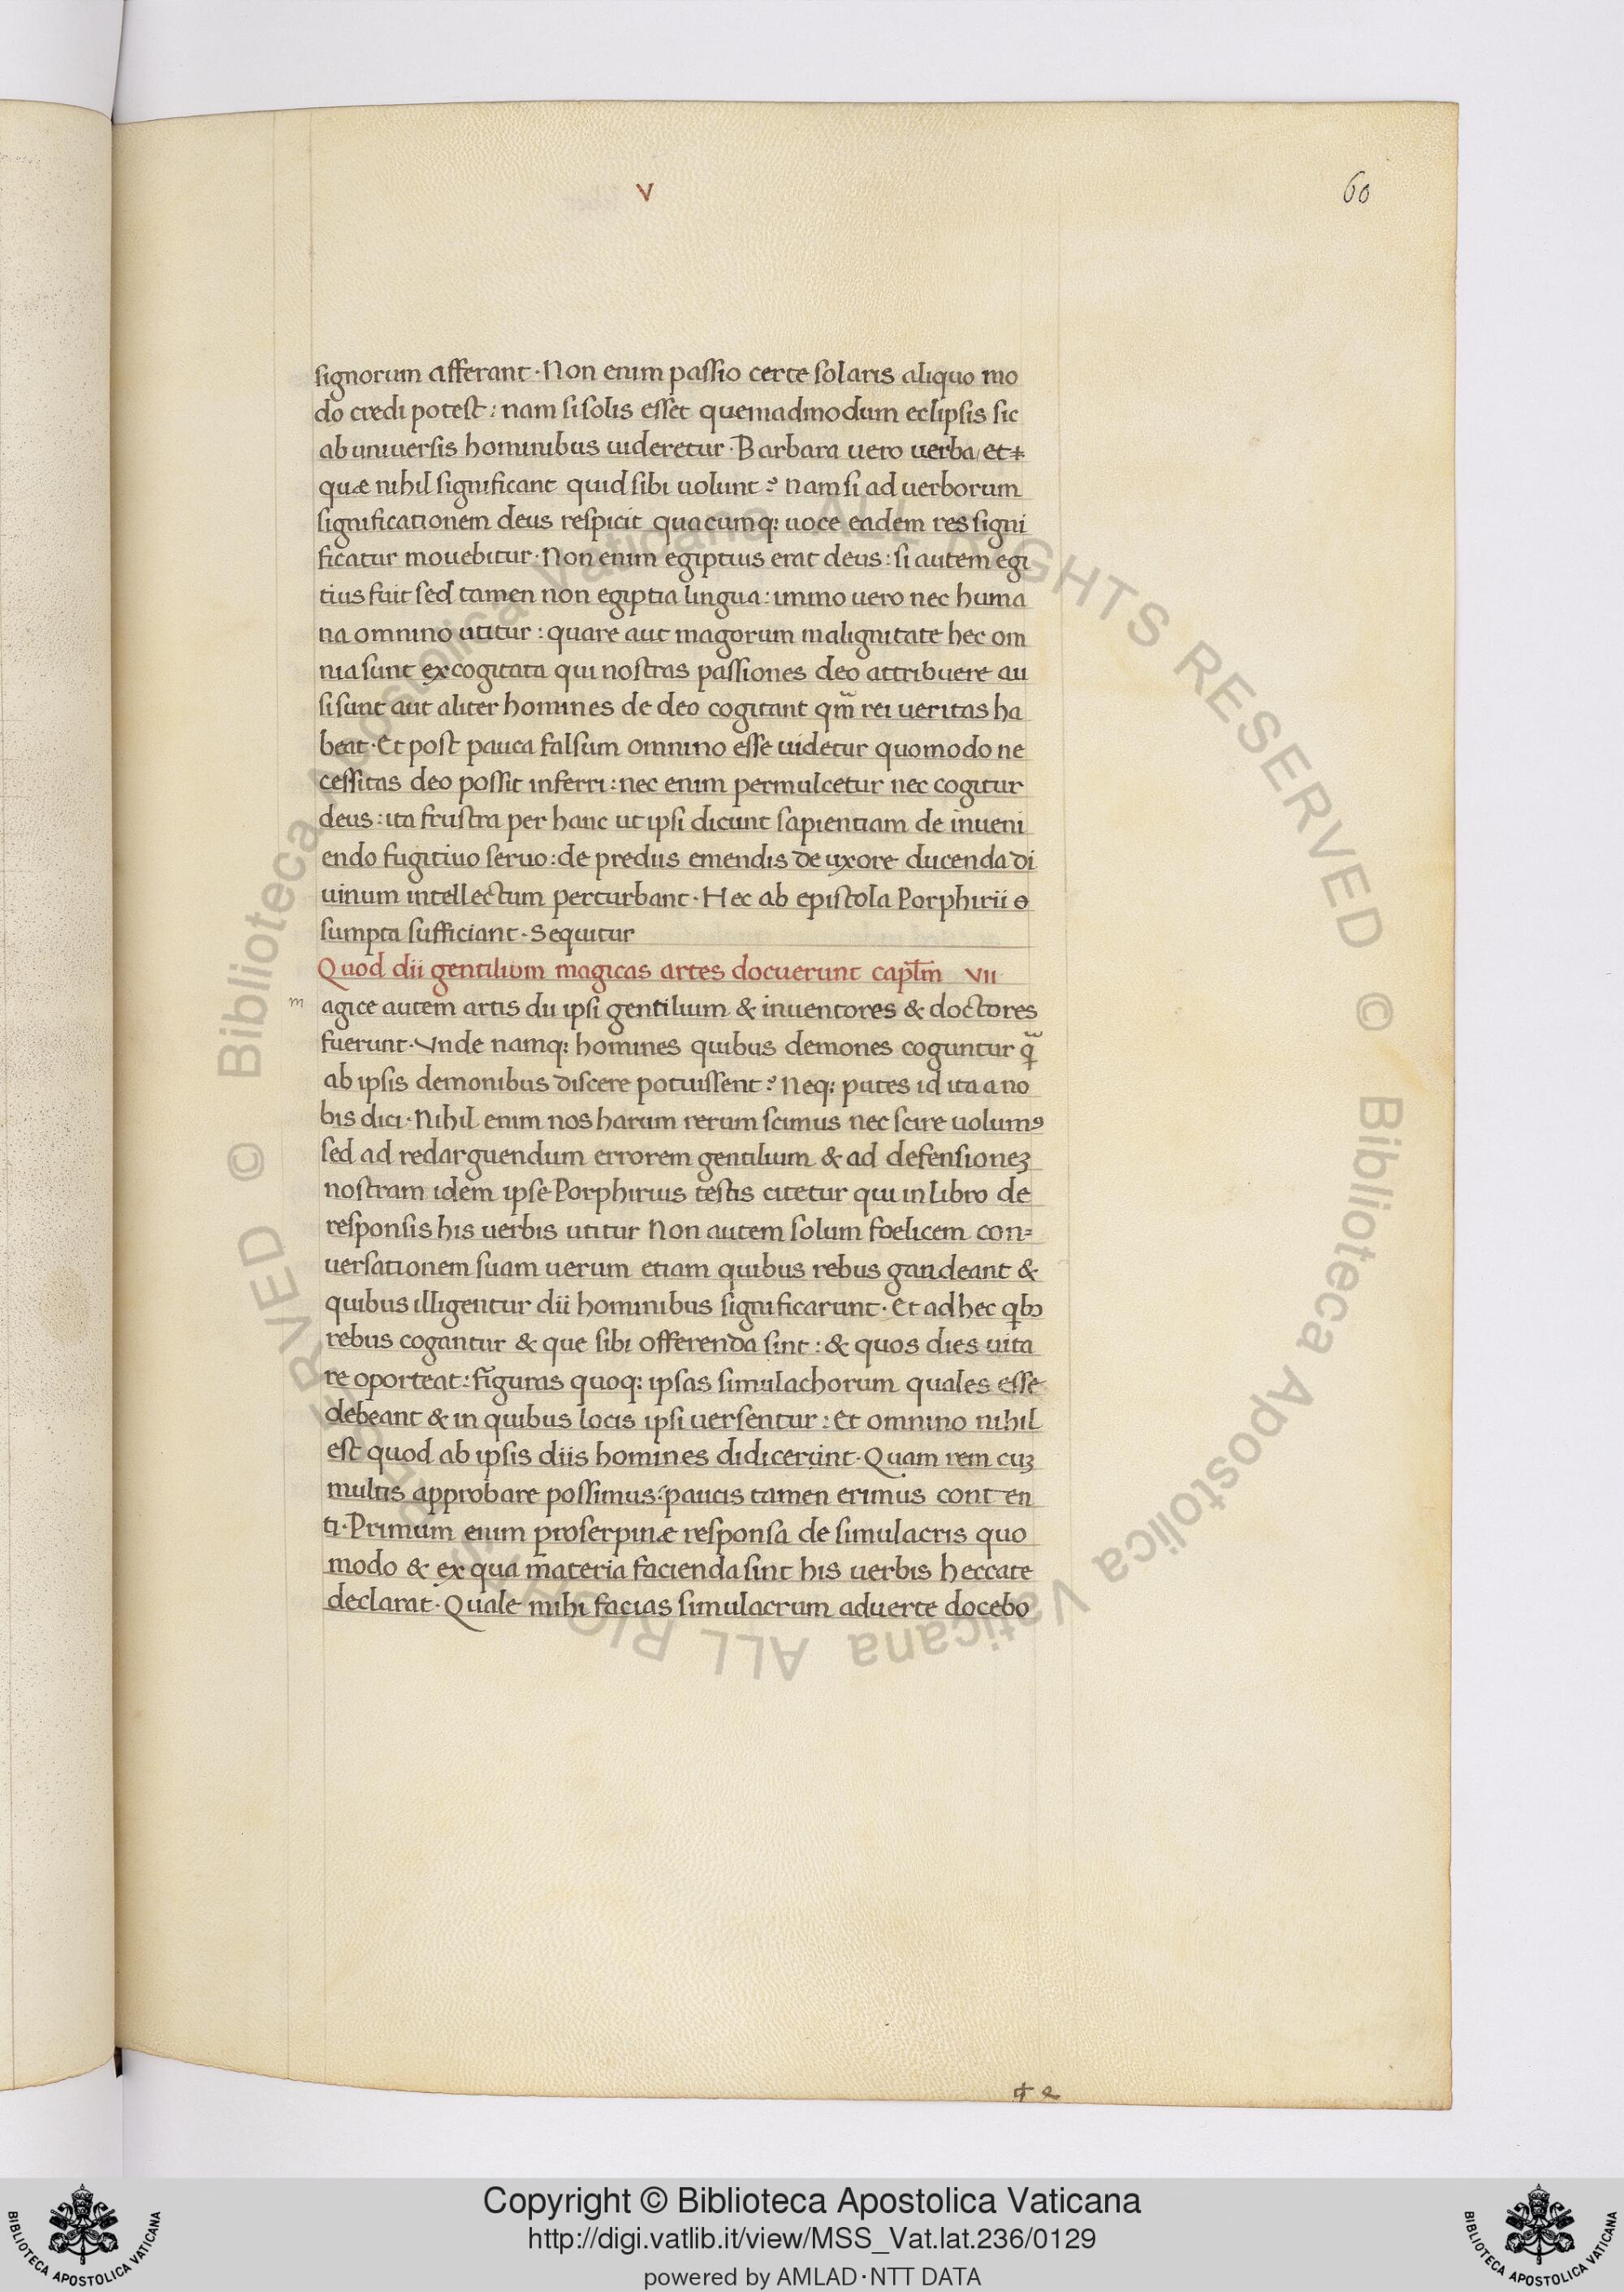 V
60
signorum afferant · Non enim passio certe solaris aliquo mo
do credi potest : nam si solis esset quemadmodum eclipsis sic
ab universis hominibus uideretur · Barbara uero uerba / et
quæ nihil significant quid sibi uolunt ? nam si ad uerborum
significationem deus respicit quacumq: uoce eadem res signi
ficatur mouebitur · Non enim egiptius erat deus : si autem egi
tius fuit sed tamen non egiptia lingua : immo uero nec huma
na omnino utitur : quare aut magorum malignitate hec om
nia sunt excogitata qui nostras passiones deo attribuere au
si sunt aut aliter homines de deo cogitant qm̃ rei ueritas ha
beat · Et post pauca falsum omnino esse uidetur quomodo ne
cessitas deo possit inferri : nec enim permulcetur nec cogitur
deus : ita frustra per hanc ut ipsi dicunt sapientiam de inueni
endo fugitiuo seruo : de prediis emendis de uxore ducenda di
uinum intellectum perturbant · Hec ab epistola Porphirii
sumpta sufficiant · Sequitur
Quod dii gentilium magicas artes docuerunt capl̃m VII
m agice autem artis dii ipsi gentilium & inuentores & doctores
fuerunt · Vnde namq: homines quibus demones coguntur q̃
ab ipsis demonibus discere potuissent ? Neq: putes id ita a no
bis dici · Nihil enim nos harum rerum scimus nec scire uolumꝰ
sed ad redarguendum errorem gentilium & ad defensioneꝫ
nostram idem ipse Porphirius testis citetur qui in libro de
responsis his uerbis utitur Non autem solum foelicem con=
uersationem suam uerum etiam quibus rebus gaudeant &
quibus illigentur dii hominibus significarunt · Et ad hec qb
rebus cogantur & que sibi offerenda sint : & quos dies uita
re oporteat : figuras quoq: ipsas simulachorum quales esse
debeant & in quibus locis ipsi uersentur : Et omnino nihil
est quod ab ipsis diis homines didicerint · Quam rem cuꝫ
multis approbare possimus : paucis tamen erimus conten
ti · Primum enim proserpinæ responsa de simulacris quo
modo & ex qua materia facienda sint his uerbis heccate
declarat · Quale mihi facias simulacrum aduerte docebo
© Biblioteca Apostolica Vaticana ALL RIGHTS RESERVED © Biblioteca Apostolica Vaticana ALL RIGHTS RESERVED
Copyright © Biblioteca Apostolica Vaticana
http://digi.vatlib.it/view/MSS_Vat.lat.236/0129
powered by AMLAD·NTT DATA
BIBLIOTECA APOSTOLICA VATICANA
BIBLIOTECA APOSTOLICA VATICANA